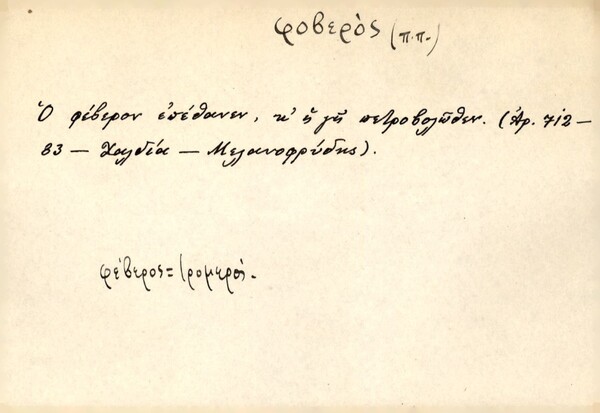 φοβερὸς (π.π.)
Ὁ φέβερον ἐπέθανεν, κ' ἡ γῆ πετροβολῶθεν. (Ἀρ. 712 –
83 – Χαλδία – Μελανοφρύδης).
φέβερος = τρομερό.